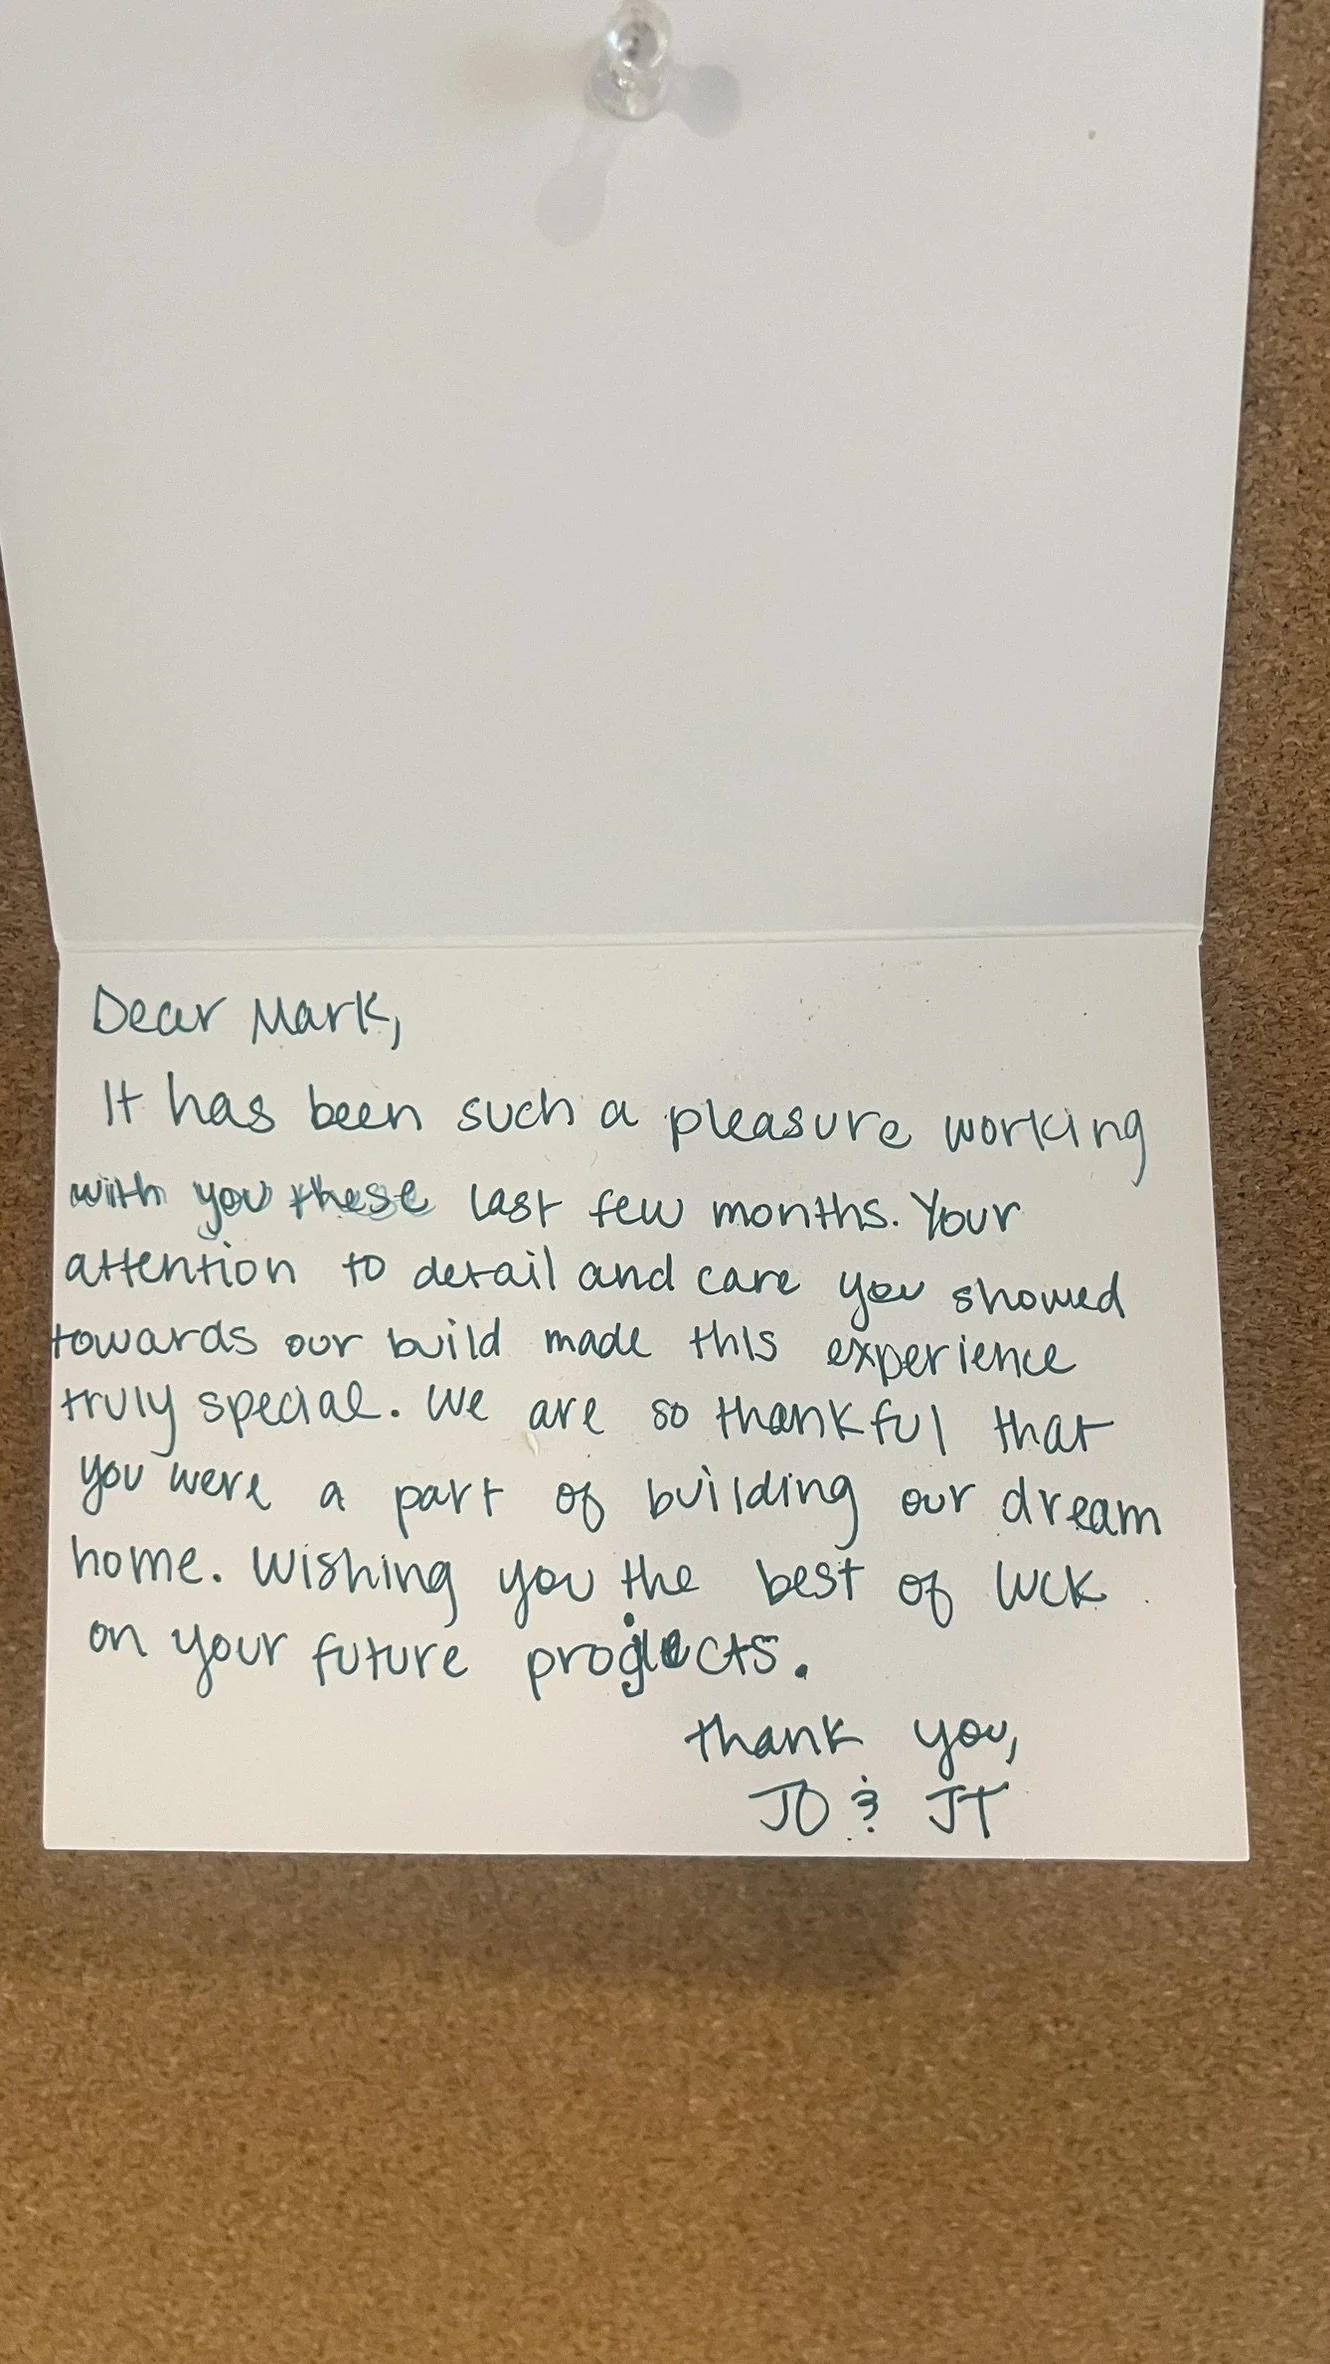 Dear Mark,
It has been such a pleasure working
with you these last few months. Your
attention to detail and care you showed
towards our build made this experience
truly special. We are so thankful that
you were a part of building our dream
home. Wishing you the best of luck
on your future projects.
thank you,
JO & JT